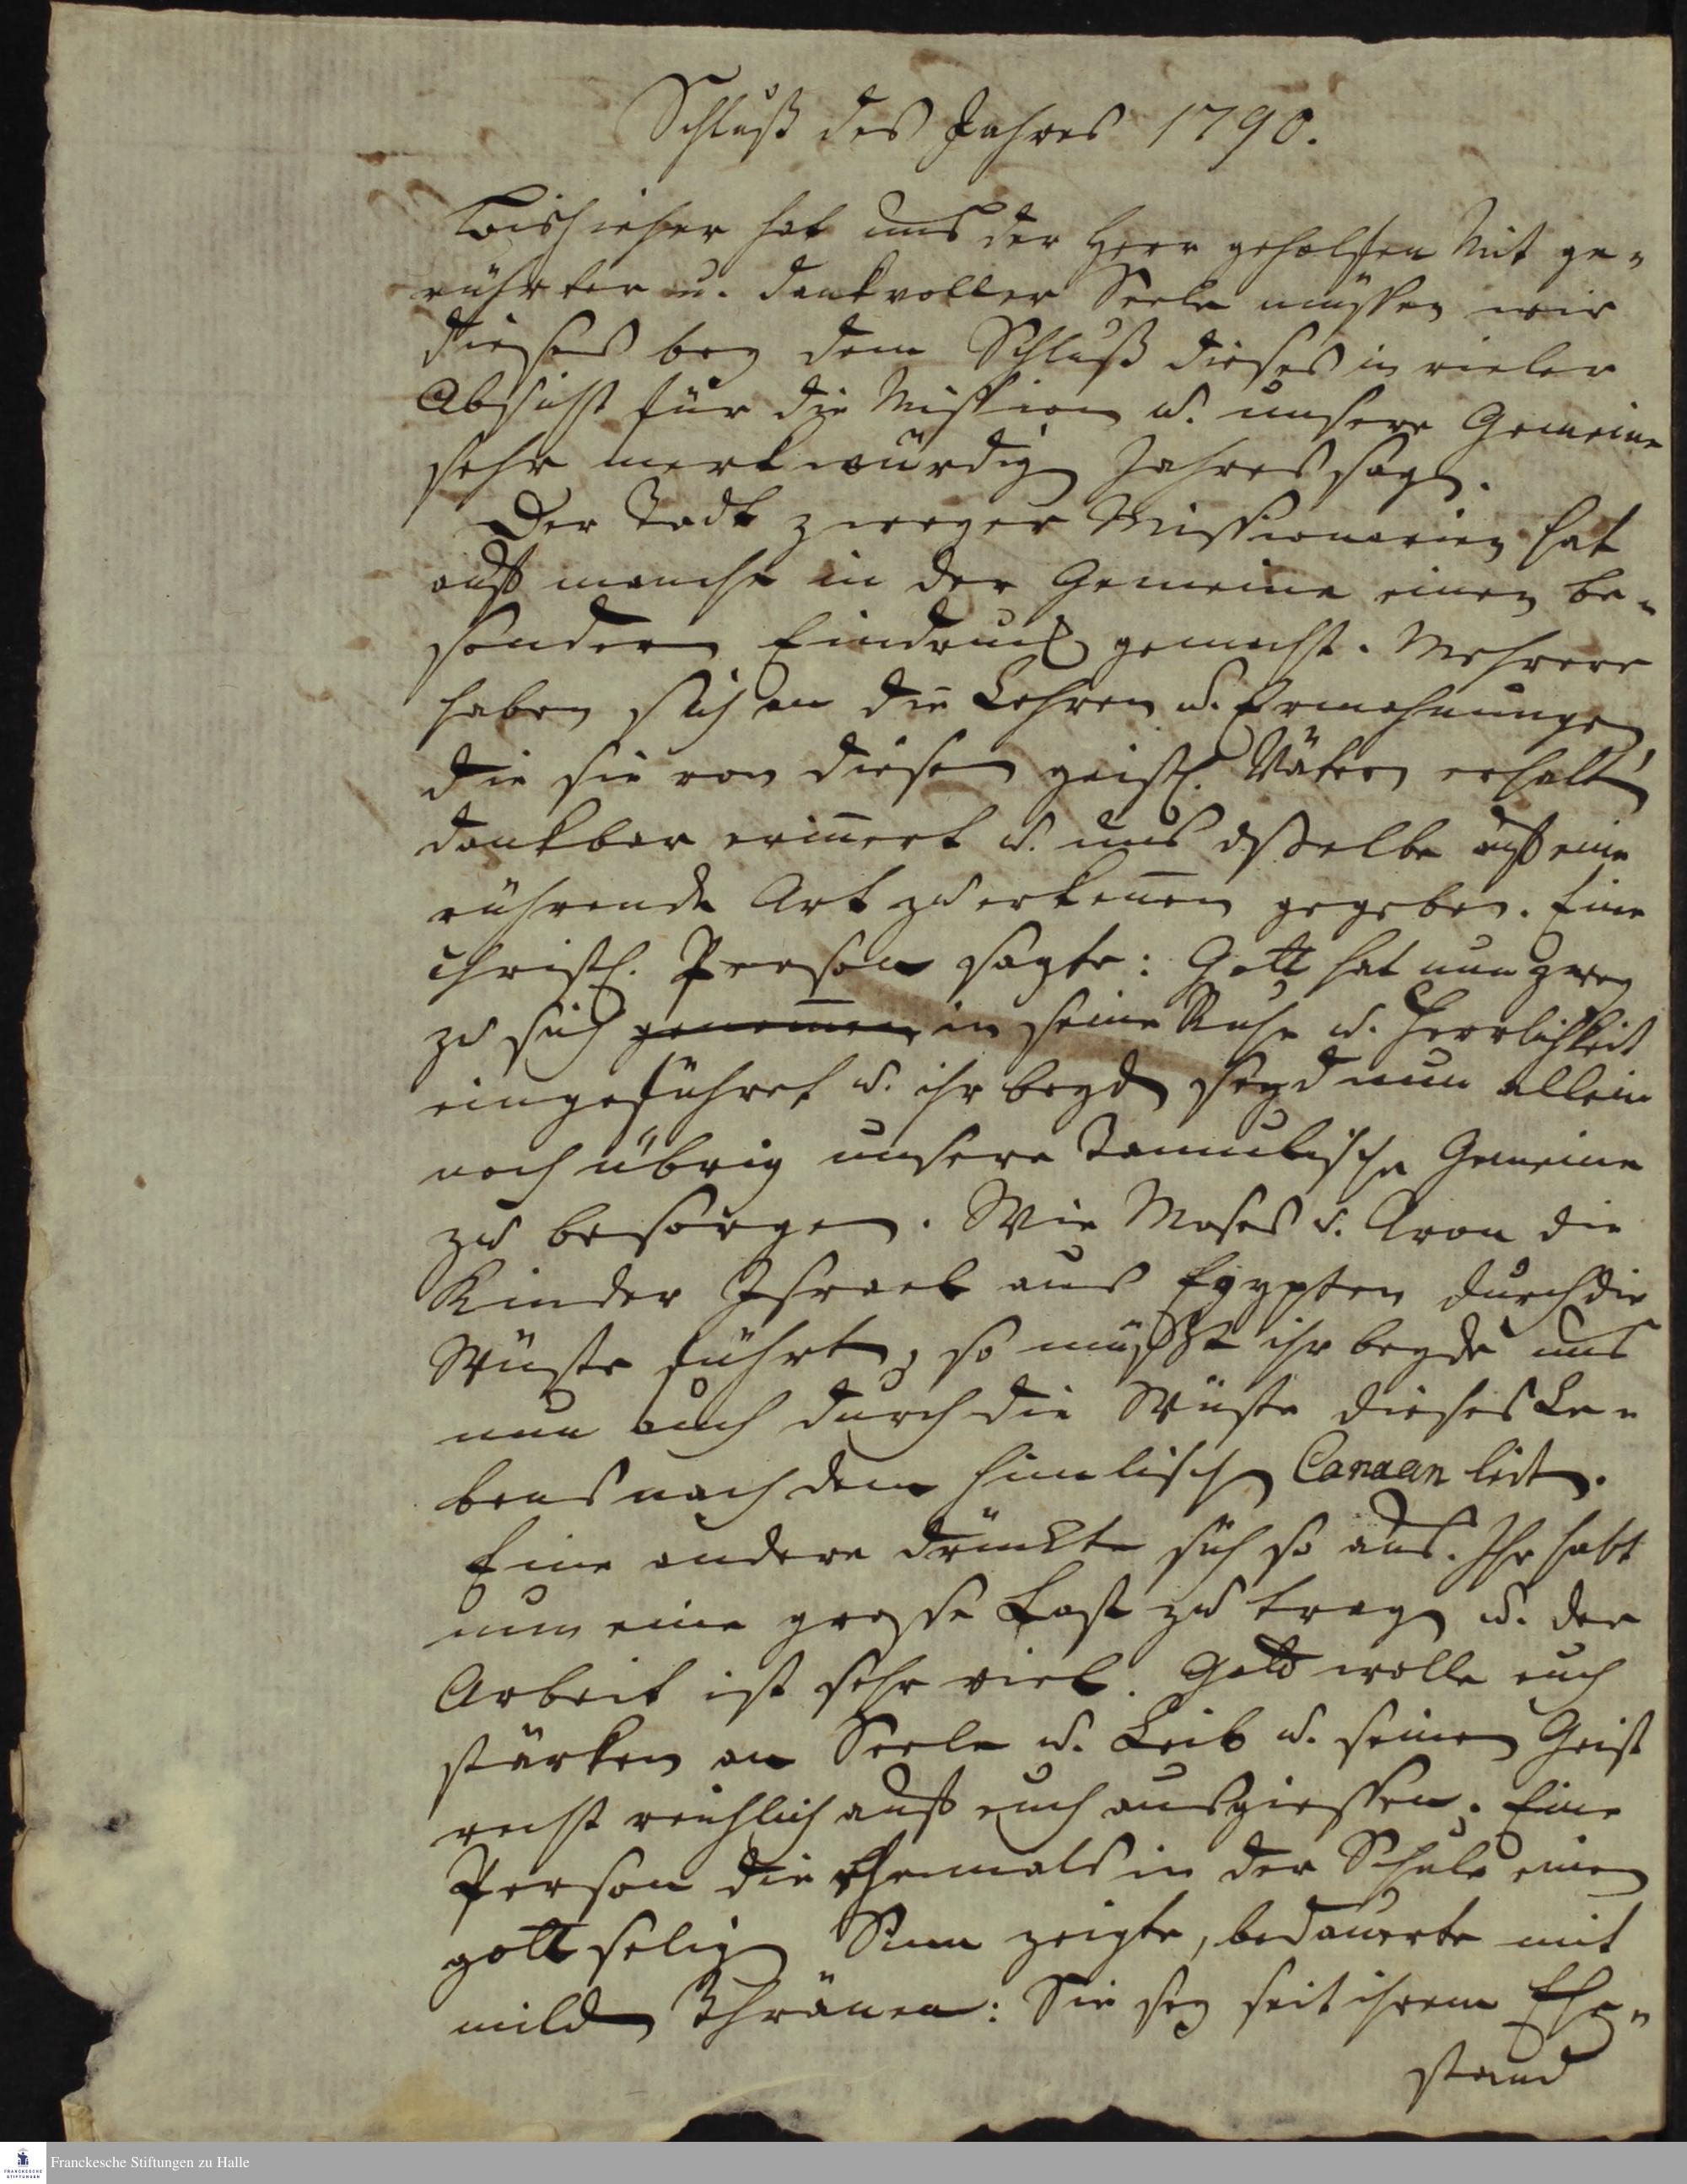 Schluß des Jahres 1790.
Bishieher hat uns der Herr geholffen Mit ge-
rührter u. dankvoller Seele müssen wir
dieses bey dem Schluß dieses in vieler
Absicht für die Mission u. unsere Gemeine
sehr merkwürdig Jahres sagen.
Der Todt zweyer Missionarien hat
auff manche in der Gemeine einen be-
sondern Eindruck gemacht. Mehrere
haben sich an die Lehren u. Ermahnungen
die sie von diesen geistl. Vätern erhalten
dankbar erinnert u. uns dasselbe auff eine
rührende Art zu erkennen gegeben. Eine
christl. Person sagte: Gott hat nun zwey
zu sich genommen in seine Ruhe u. Herrlichkeit
eingeführet u. ihr beyde seyd nun allein
noch übrig unsere Tamulische Gemeine
zu besorgen. Wie Moses u. Aron die
Kinder Israel aus Egypten durch die
Wüste führten, so müsst ihr beyde uns
nun auch durch die Wüste dieses Le-
bens nach dem himlischen Canaan leiten.
Eine andere drückte sich so aus. Ihr habt
nun eine grosse Last zu tragen u. der
Arbeit ist sehr viel. Gott wolle euch
stärken an Seele u. Leib u. seinen Geist
recht reichlich auff euch ausgiessen. Eine
Person die ehemals in der Schule einen
gottseligen Sinn zeigte, bedauerte mit
milden Thränen: Sie sey seit ihrem Ehe-
stand
Franckesche Stiftungen zu Halle
FRANCKESCHE
STIFTUNGEN